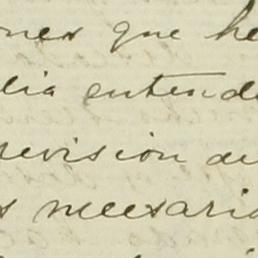 ones que he
lia entende
revision de
s necesario